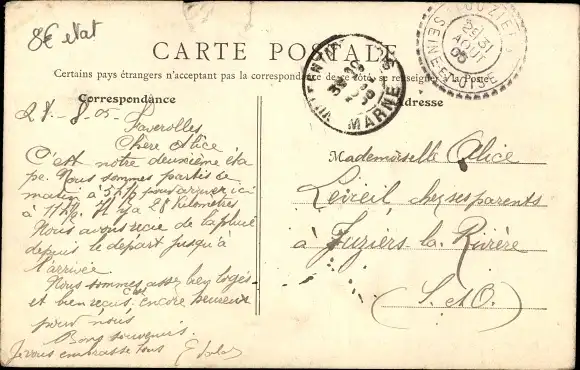 8€ etat
CARTE POSTALE
Certains pays étrangers n'acceptant pas la correspondance de ce côté, se renseigner à la Poste
Correspondance
Adresse
28-8-05-
Faverolles
Chère Alice
C'est notre deuxième éta
pe. Nous sommes partis ce
matin à 5 h ½ pour arriver ici
à 11 h ½. Il y a 28 Kilomètres
Nous avons reçu de la pluie
depuis le départ jusqu'à
l'arrivée
Nous sommes assez bien logés
et bien reçus c'est encore heureux
pour nous
Bons souvenirs
Je vous embrasse tous
Mademoiselle Alice
chez ses parents
à Juziers-la-Rivière
(S. & O.)
MARNE
31
AOUT
05
SEINE-ET-OISE